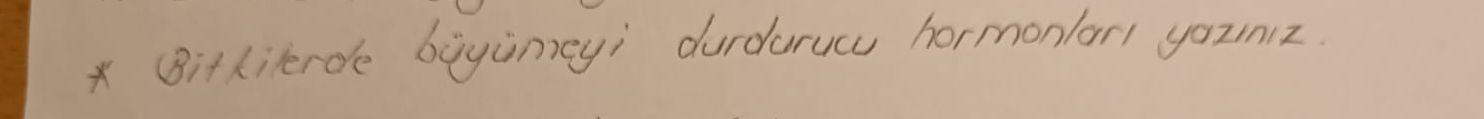 * Bitkilerde büyümeyi durdurucu hormonları yazınız.